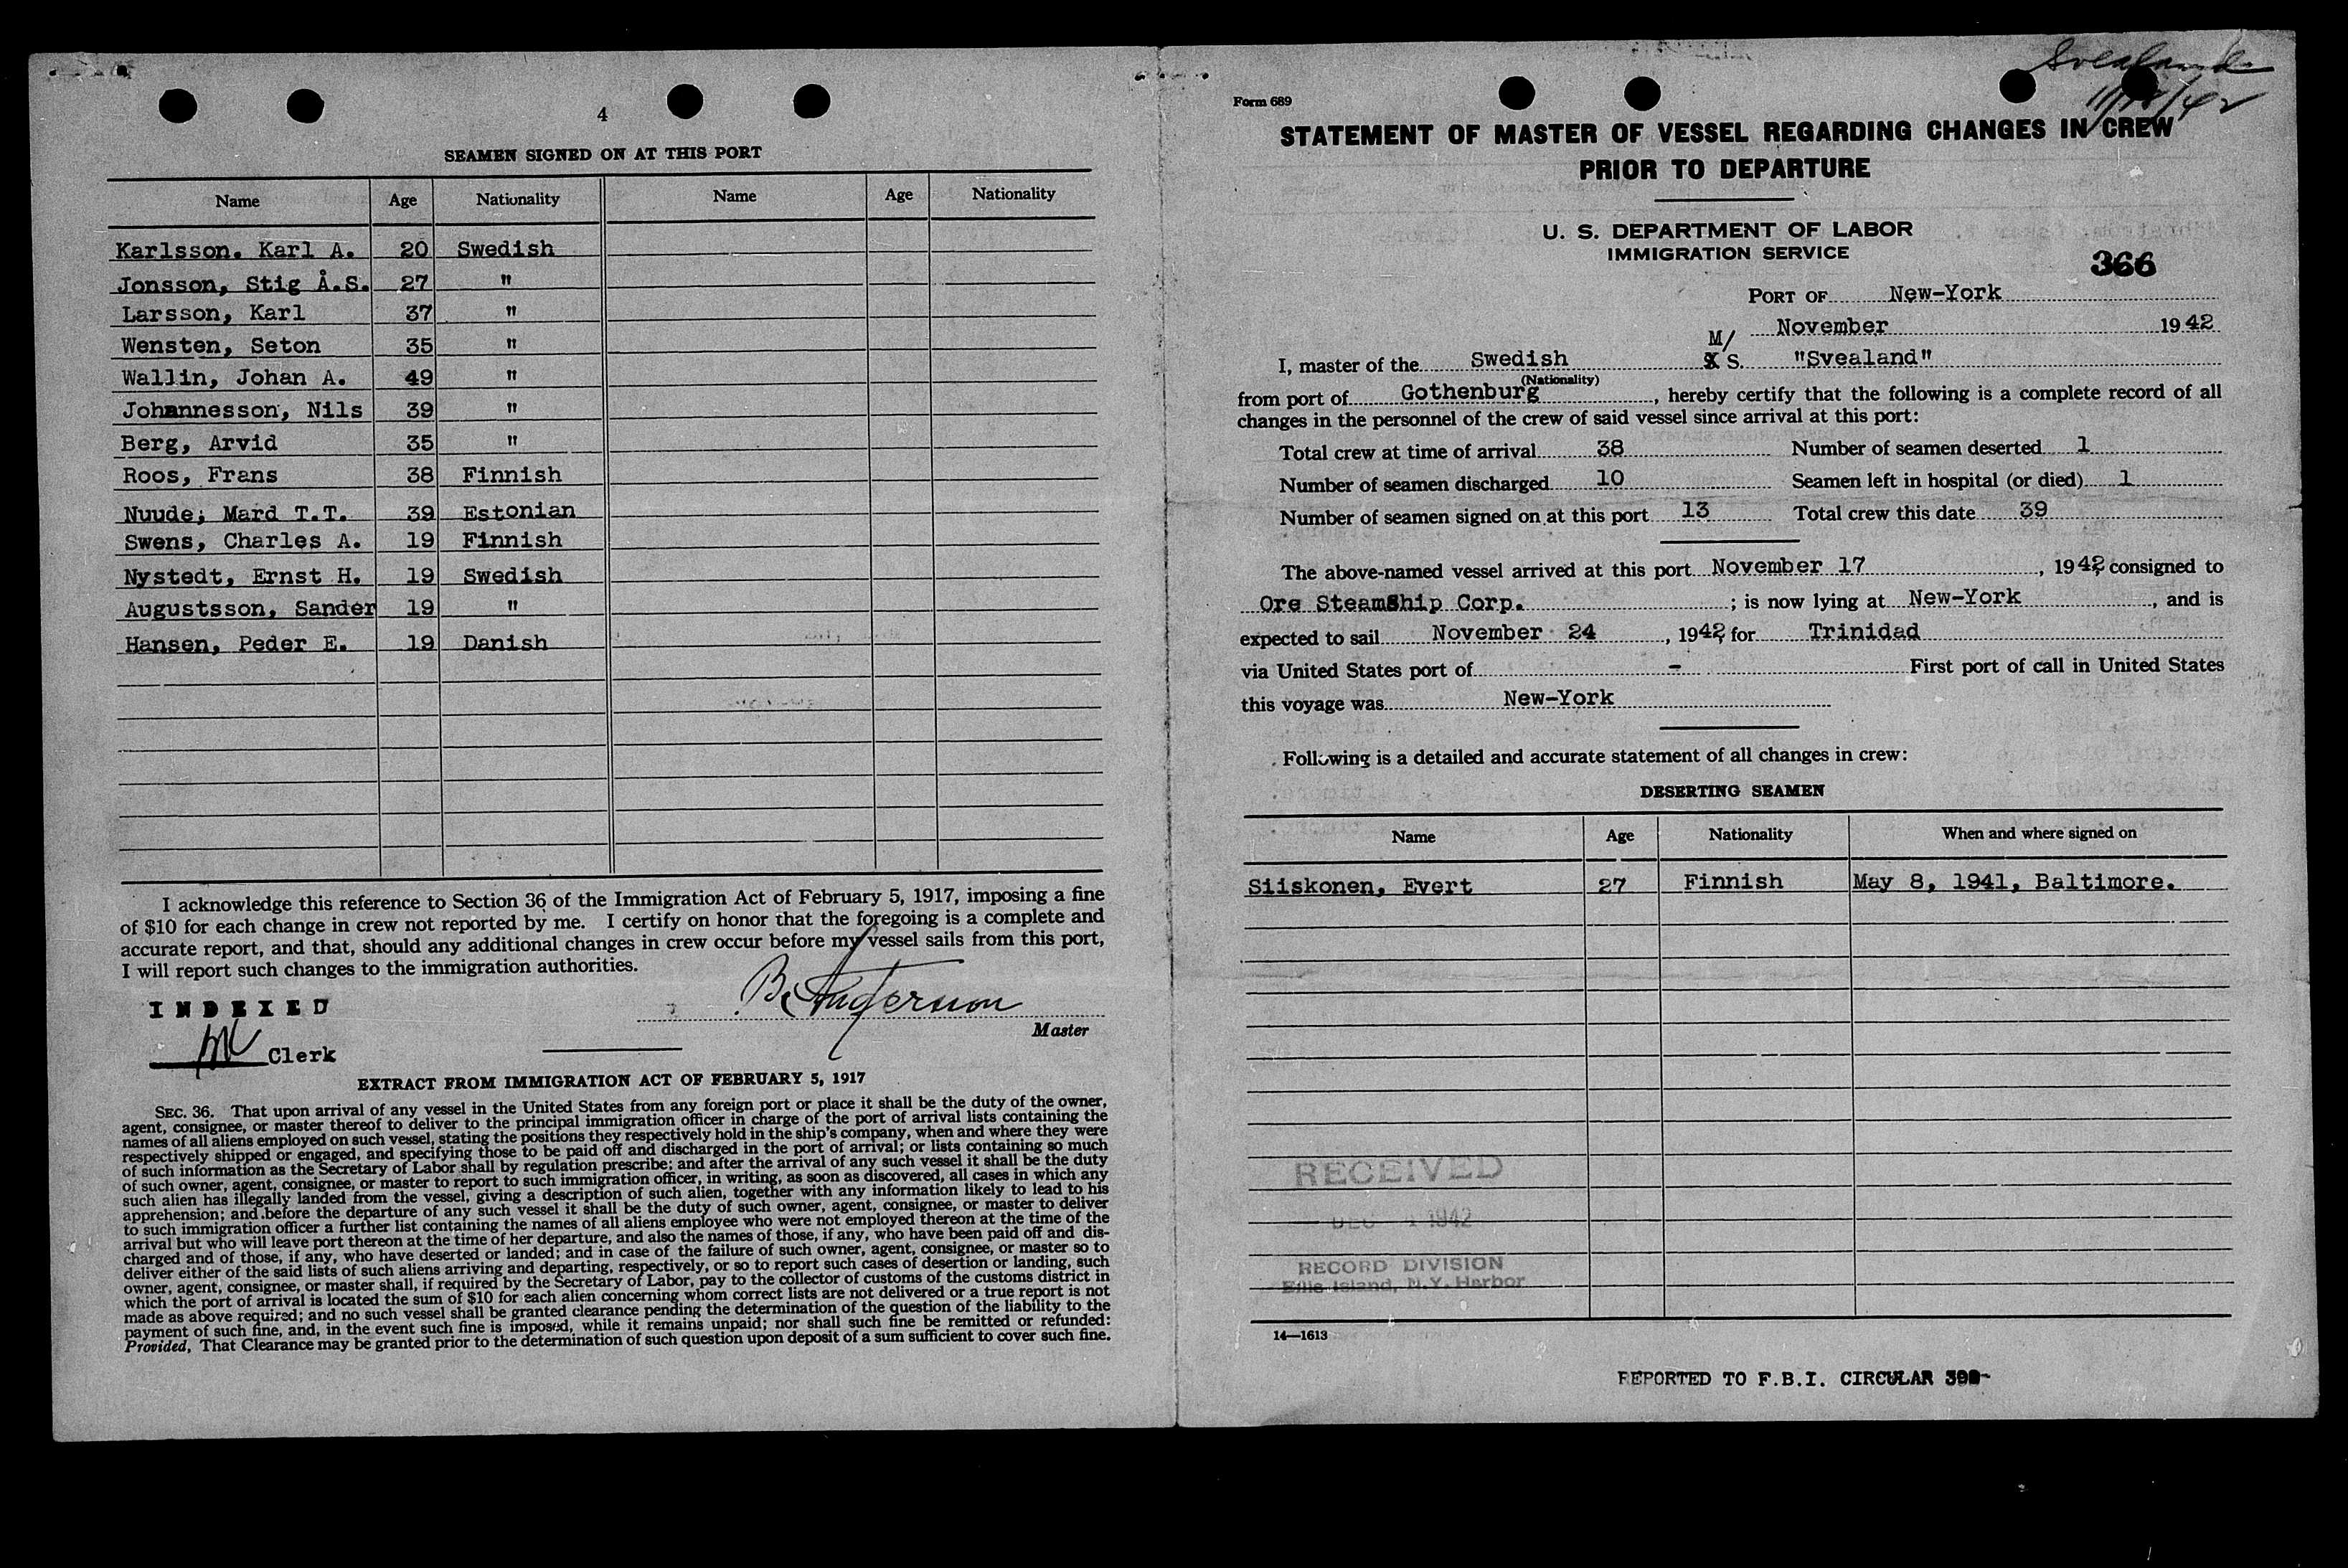 4
SEAMEN SIGNED ON AT THIS PORT
Name Age Nationality Name Age Nationality
Karlsson. Karl A. 20 Swedish
Jonsson, Stig Å.S. 27 "
Larsson, Karl 37 "
Wensten, Seton 35 "
Wallin, Johan A. 49 "
Johannesson, Nils 39 "
Berg, Arvid 35 "
Roos, Frans 38 Finnish
Nuude; Mard T.T. 39 Estonian
Swens, Charles A. 19 Finnish
Nystedt, Ernst H. 19 Swedish
Augustsson, Sander 19 "
Hansen, Peder E. 19 Danish
I acknowledge this reference to Section 36 of the Immigration Act of February 5, 1917, imposing a fine
of $10 for each change in crew not reported by me. I certify on honor that the foregoing is a complete and
accurate report, and that, should any additional changes in crew occur before my vessel sails from this port,
I will report such changes to the immigration authorities.
INDEXED
B. Anderson
Master
Clerk
EXTRACT FROM IMMIGRATION ACT OF FEBRUARY 5, 1917
SEC. 36. That upon arrival of any vessel in the United States from any foreign port or place it shall be the duty of the owner,
agent, consignee, or master thereof to deliver to the principal immigration officer in charge of the port of arrival lists containing the
names of all aliens employed on such vessel, stating the positions they respectively hold in the ship's company, when and where they were
respectively shipped or engaged, and specifying those to be paid off and discharged in the port of arrival; or lists containing so much
of such information as the Secretary of Labor shall by regulation prescribe; and after the arrival of any such vessel it shall be the duty
of such owner, agent, consignee, or master to report to such immigration officer, in writing, as soon as discovered, all cases in which any
such alien has illegally landed from the vessel, giving a description of such alien, together with any information likely to lead to his
apprehension; and before the departure of any such vessel it shall be the duty of such owner, agent, consignee, or master to deliver
to such immigration officer a further list containing the names of all aliens employee who were not employed thereon at the time of the
arrival but who will leave port thereon at the time of her departure, and also the names of those, if any, who have been paid off and dis-
charged and of those, if any, who have deserted or landed; and in case of the failure of such owner, agent, consignee, or master so to
deliver either of the said lists of such aliens arriving and departing, respectively, or so to report such cases of desertion or landing, such
owner, agent, consignee, or master shall, if required by the Secretary of Labor, pay to the collector of customs of the customs district in
which the port of arrival is located the sum of $10 for each alien concerning whom correct lists are not delivered or a true report is not
made as above required; and no such vessel shall be granted clearance pending the determination of the question of the liability to the
payment of such fine, and, in the event such fine is imposed, while it remains unpaid; nor shall such fine be remitted or refunded:
Provided, That Clearance may be granted prior to the determination of such question upon deposit of a sum sufficient to cover such fine.
Svealand
Form 689
STATEMENT OF MASTER OF VESSEL REGARDING CHANGES IN CREW
PRIOR TO DEPARTURE
U. S. DEPARTMENT OF LABOR
IMMIGRATION SERVICE
366
PORT OF New-York
November 1942
I, master of the Swedish M/ S. "Svealand"
(Nationality)
from port of Gothenburg, hereby certify that the following is a complete record of all
changes in the personnel of the crew of said vessel since arrival at this port:
Total crew at time of arrival 38 Number of seamen deserted 1
Number of seamen discharged 10 Seamen left in hospital (or died) 1
Number of seamen signed on at this port 13 Total crew this date 39
The above-named vessel arrived at this port November 17, 1942 consigned to
Ore Steamship Corp.; is now lying at New-York, and is
expected to sail November 24, 1942, for Trinidad
via United States port of - First port of call in United States
this voyage was New-York
Following is a detailed and accurate statement of all changes in crew:
DESERTING SEAMEN
Name Age Nationality When and where signed on
Siiskonen, Evert 27 Finnish May 8, 1941, Baltimore.
RECEIVED
DEC 1942
RECORD DIVISION
Ellis Island, N.Y. Harbor
14—1613
REPORTED TO F.B.I. CIRCULAR